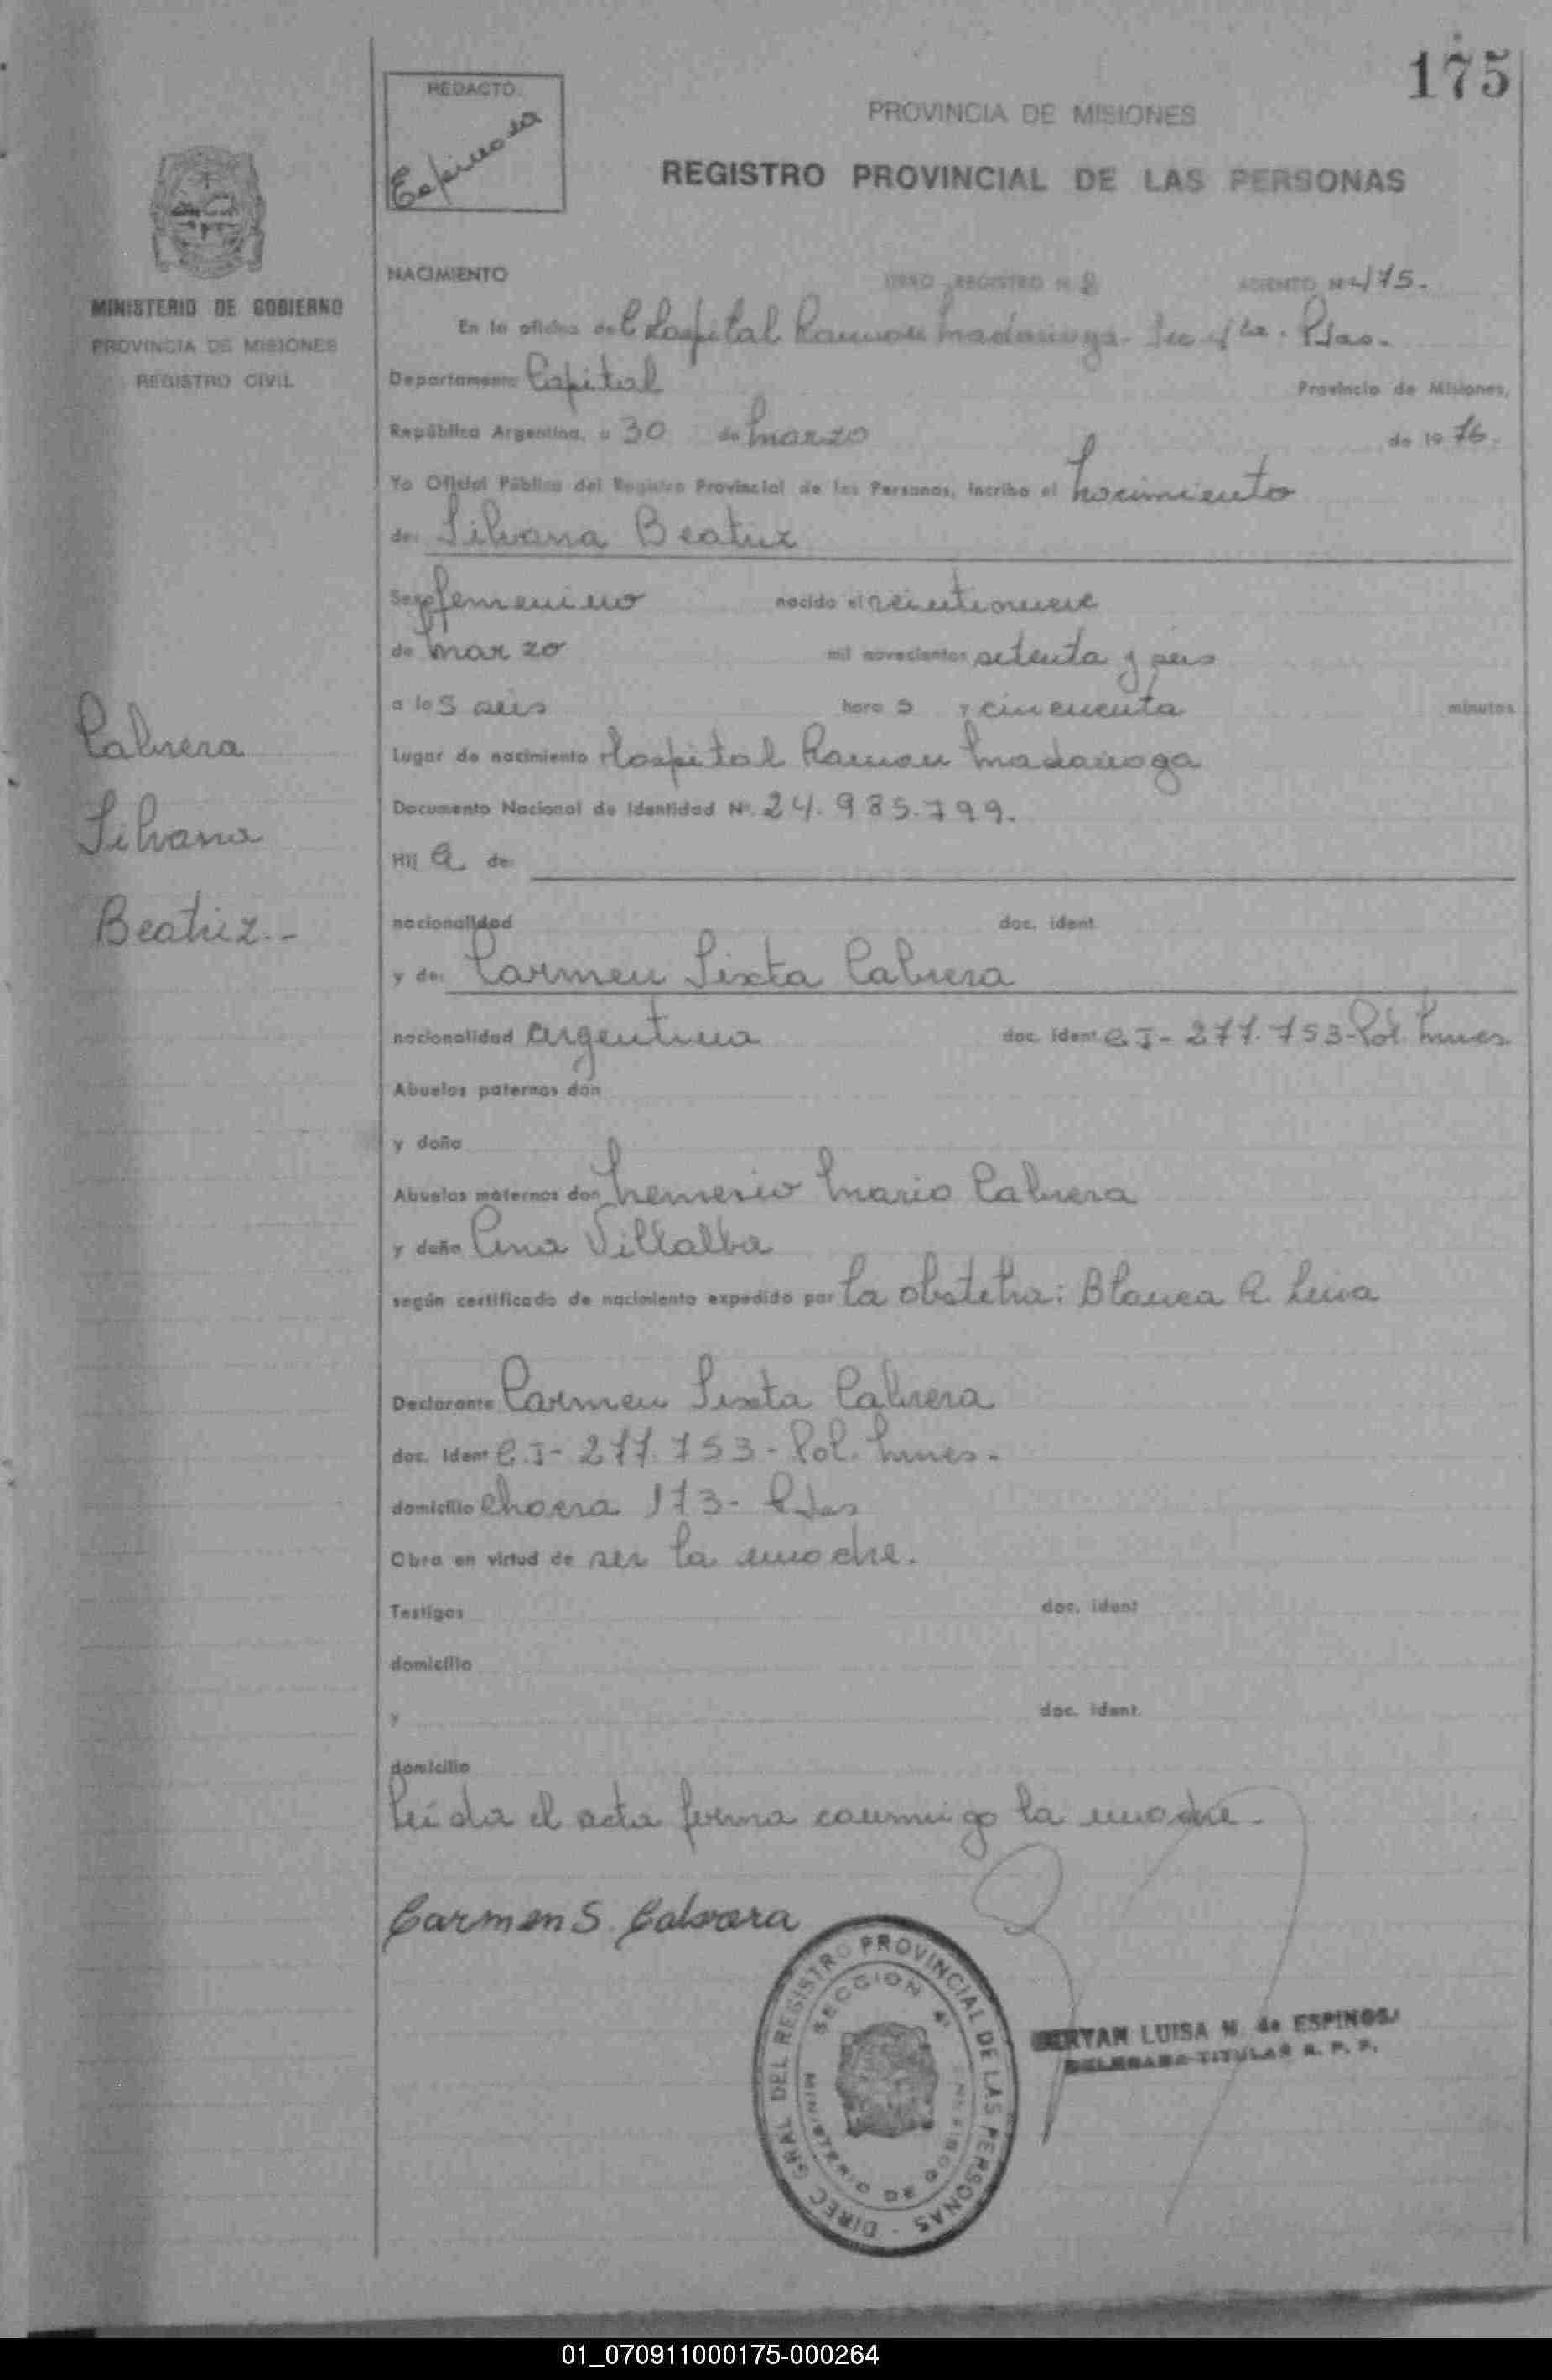 175
REDACTO
Espinosa
PROVINCIA DE MISIONES
REGISTRO PROVINCIAL DE LAS PERSONAS
MINISTERIO DE GOBIERNO
PROVINCIA DE MISIONES
REGISTRO CIVIL
Cabrera
Silvana
Beatriz.-
NACIMIENTO LIBRO REGISTRO N ASIENTO Nº 175.
En la oficina del Hospital Ramon Madariaga - Sec 4ta. Pdas.
Departamento Capital Provincia de Misiones,
República Argentina, a 30 de Marzo de 1976.
Yo Oficial Público del Registro Provincial de las Personas, incribo el Nacimiento
de: Silvana Beatriz
Sexo femenino nacido el veintinueve
de Marzo mil novecientos setenta y seis
a las seis horas y cincuenta minutos
Lugar de nacimiento Hospital Ramon Madariaga
Documento Nacional de Identidad Nº. 24.985.799.
Hija de:
nacionalidad doc. ident.
y de: Carmen Sixta Cabrera
nacionalidad argentina doc. ident C I - 277.753-Pol. Mnes.
Abuelos paternos don
y doña
Abuelos maternos don Nemesio Mario Cabrera
y doña Ana Villalba
según certificado de nacimiento expedido por La obstetra: Blanca R.
Declarante Carmen Sixta Cabrera
doc. Ident C.I- 277.753 - Pol. Mnes.
domicilio Chacra 173- Pdas
Obra en virtud de ser la madre.
Testigos doc. ident
domicilio
y doc. ident.
domicilio
Leída el acta firma conmigo la madre.
Carmen S. Cabrera
DIREC GRAL DEL REGISTRO PROVINCIAL DE LAS PERSONAS
SECCION 4ª
MINISTERIO DE GOBIERNO
LUISA N. de ESPINOSA
DELEGADA TITULAR R. P. P.
01_070911000175-000264